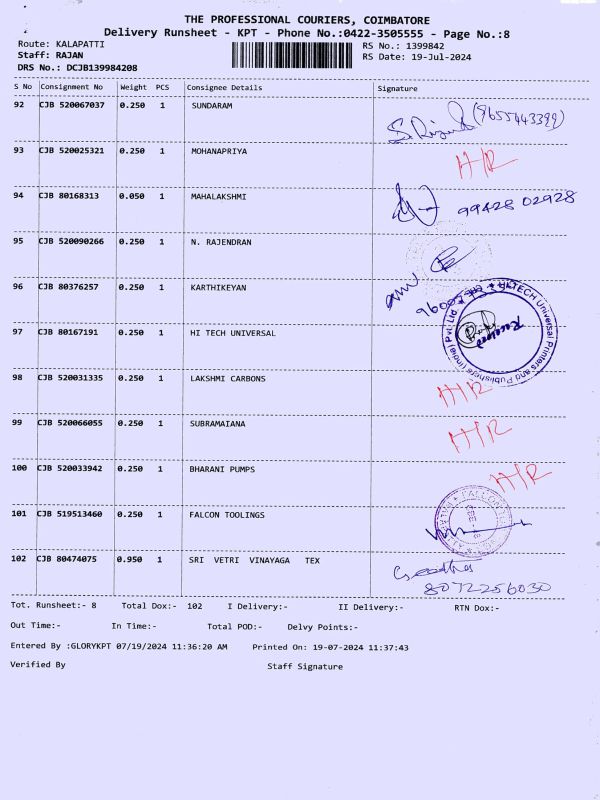 THE PROFESSIONAL COURIERS, COIMBATORE
Delivery Runsheet - KPT - Phone No.:0422-3505555 - Page No.:8
Route: KALAPATTI
RS No.: 1399842
Staff: RAJAN
RS Date: 19-Jul-2024
DRS No.: DCJB139984208
S No Consignment No Weight PCS Consignee Details Signature
92 CJB 520067037 0.250 1 SUNDARAM
(9655443399)
93 CJB 520025321 0.250 1 MOHANAPRIYA
H/R
94 CJB 80168313 0.050 1 MAHALAKSHMI
99428 02928
95 CJB 520090266 0.250 1 N. RAJENDRAN
96 CJB 80376257 0.250 1 KARTHIKEYAN
97 CJB 80167191 0.250 1 HI TECH UNIVERSAL
HITECH Universal Printers and Publishers (India) Pvt. Ltd
Received
98 CJB 520031335 0.250 1 LAKSHMI CARBONS
H/R
99 CJB 520066055 0.250 1 SUBRAMAIANA
H/R
100 CJB 520033942 0.250 1 BHARANI PUMPS
H/R
101 CJB 519513460 0.250 1 FALCON TOOLINGS
102 CJB 80474075 0.950 1 SRI VETRI VINAYAGA TEX
8072256030
Tot. Runsheet:- 8 Total Dox:- 102 I Delivery:- II Delivery:- RTN Dox:-
Out Time:- In Time:- Total POD:- Delvy Points:-
Entered By :GLORYKPT 07/19/2024 11:36:20 AM Printed On: 19-07-2024 11:37:43
Verified By Staff Signature